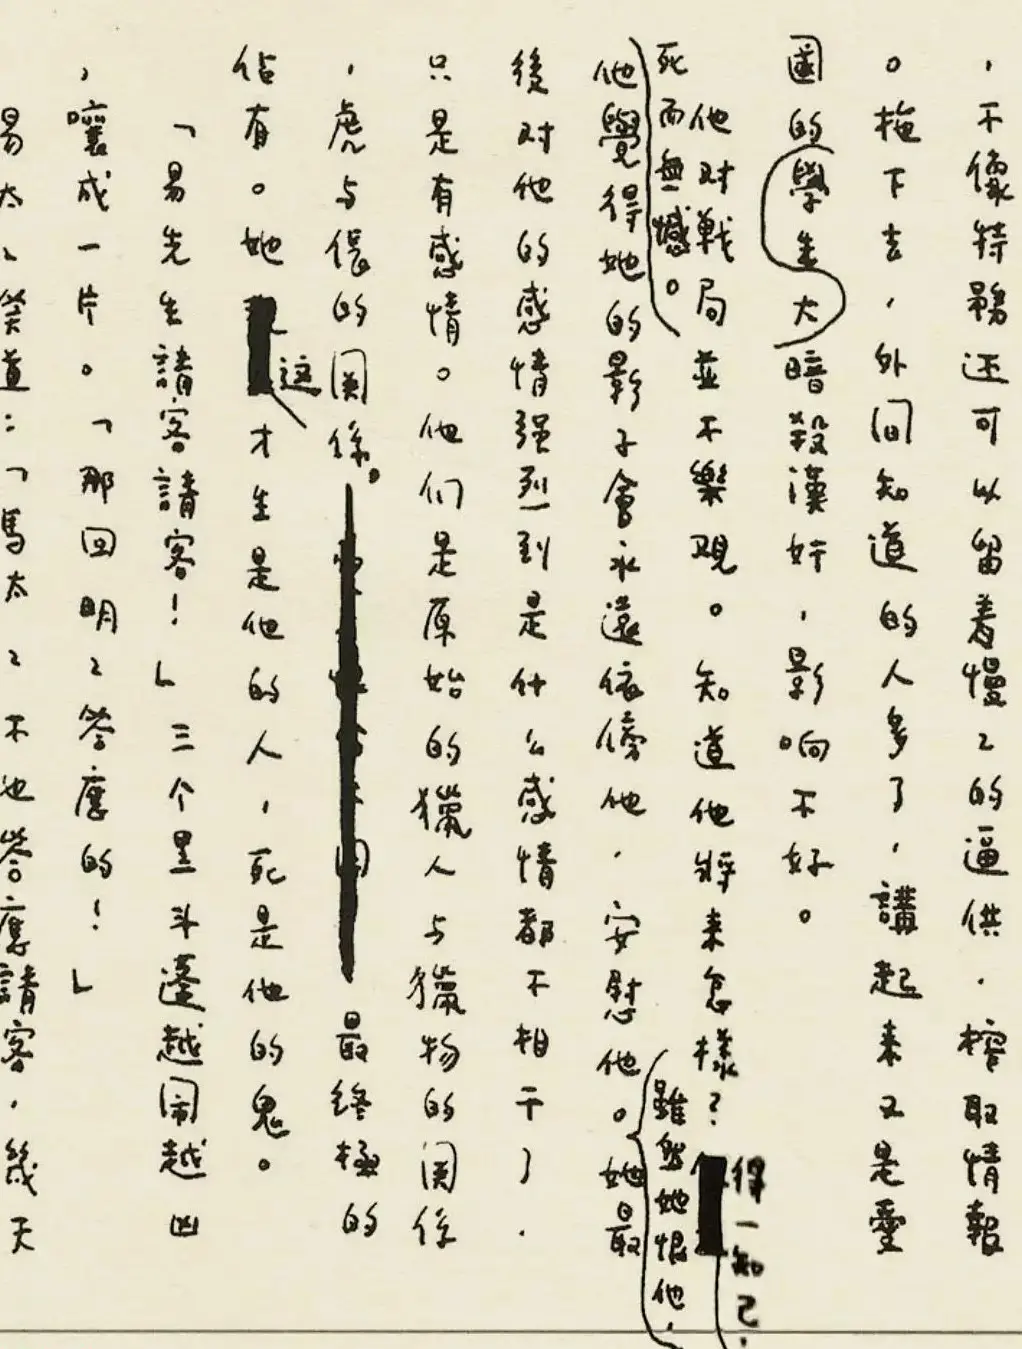 ，不像特務还可以留着慢ㄑ的逼供，榨取情報
。拖下去，外间知道的人多了，講起来又是愛
國的學生大暗殺漢奸，影响不好。
他对戰局並不樂观。知道他將来怎樣？得一知己，
死而無憾。
他覺得她的影子會永遠依傍他，安慰他。雖然她恨他，她最
後对他的感情强烈到是什么感情都不相干了，
只是有感情。他们是原始的獵人与獵物的関係
，虎与伥的関係。最终極的
佔有。她这才生是他的人，死是他的鬼。
「易先生請客請客！」三个黑斗蓬越闹越凶
，嚷成一片。「那回明ㄑ答應的！」
易太ㄑ笑道：「馬太ㄑ不也答應請客，幾天